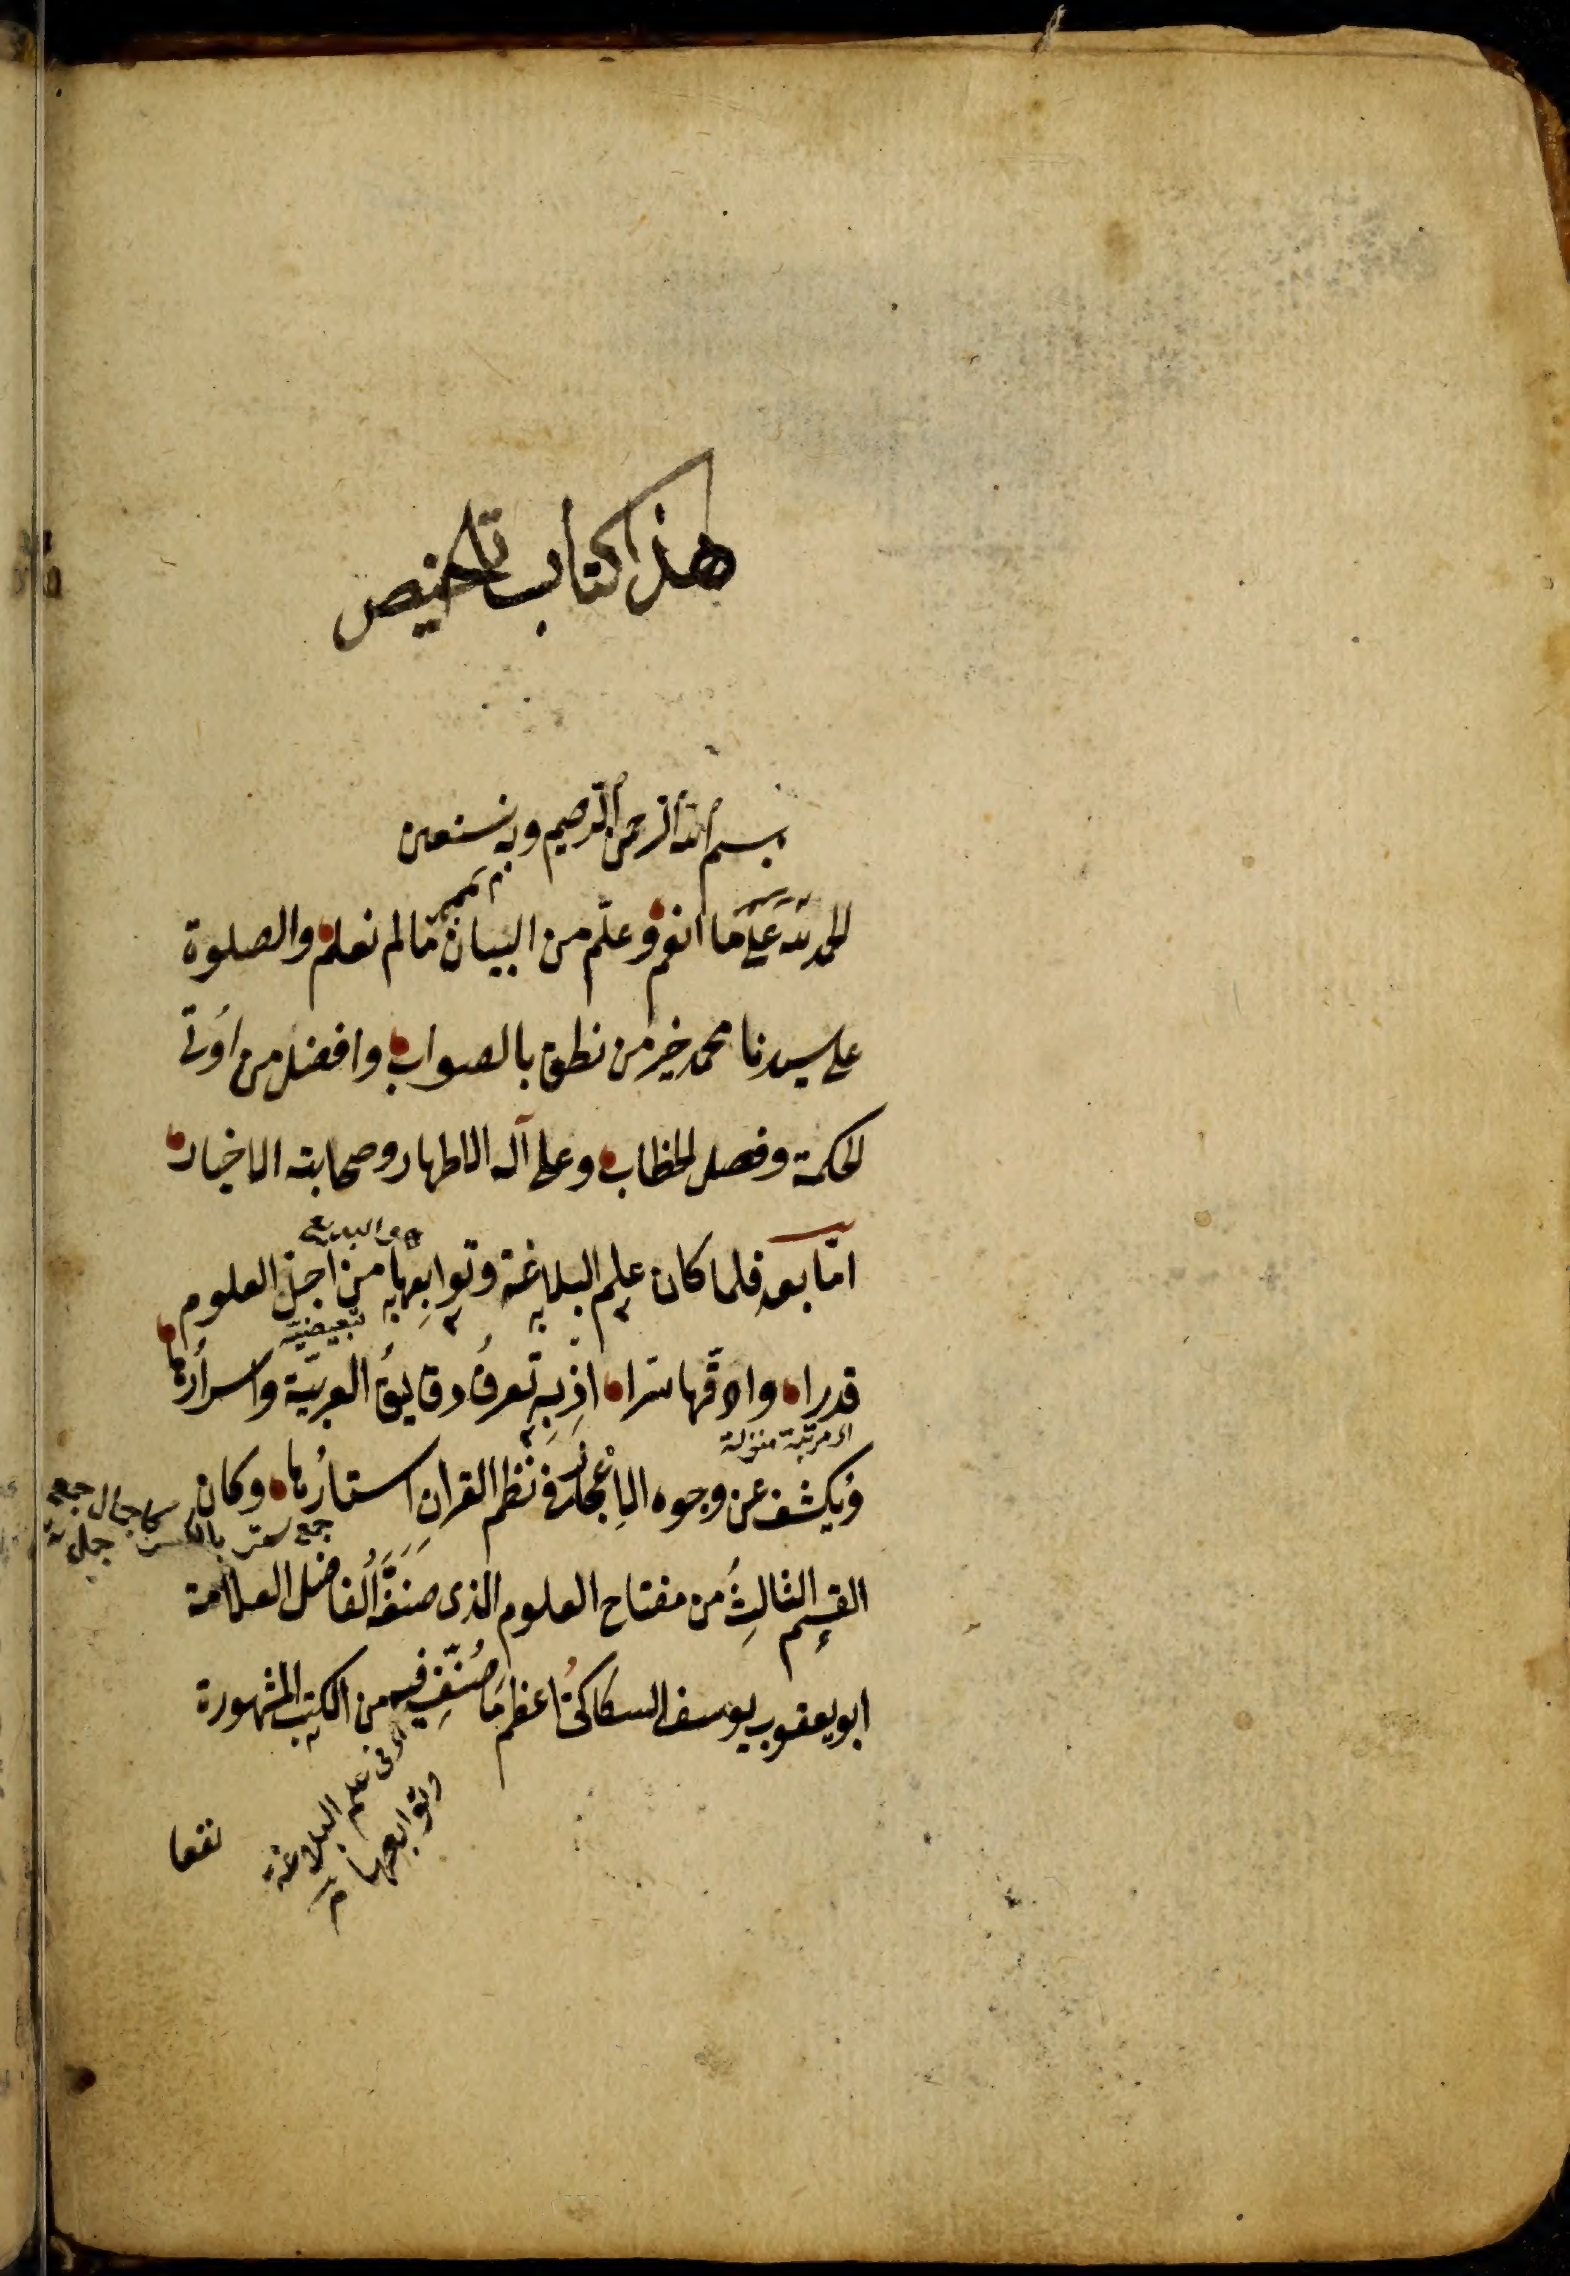 هذا كتاب تلخيص
بسم الله الرحمن الرحيم وبه نستعين
الحمد لله على ما انعم وعلّم من البيان ما لم نعلم والصلوة
على سيدنا محمد خير من نطق بالصواب وافضل من اُوتى
الحكمة وفصل الخطاب وعلى آله الاطهار وصحابته الاخيار
والبديع
امّا بعد فلما كان علم البلاغة وتوابعها من اجلّ العلوم
تبعيضية
قدرا وادقّها سرّا اذ به تعرفُ دقايقُ العربيّة واسرارُها
اى مرتبة منزلة
ويُكشف عن وجوه الاِعْجاز فى نظم القرانِ استارُها وكان
كاجمال جمع
جمع ستر بالكسر جمل
القسم الثالثُ من مفتاح العلوم الذى صنّفَه الفاضل العلامة
ابو يعقوب يوسف السكاكىُّ اعظم مَا صُنّفِ فيه من الكتب المشهورة
اى فى علم البلاغة
وتوابعها
نفعا